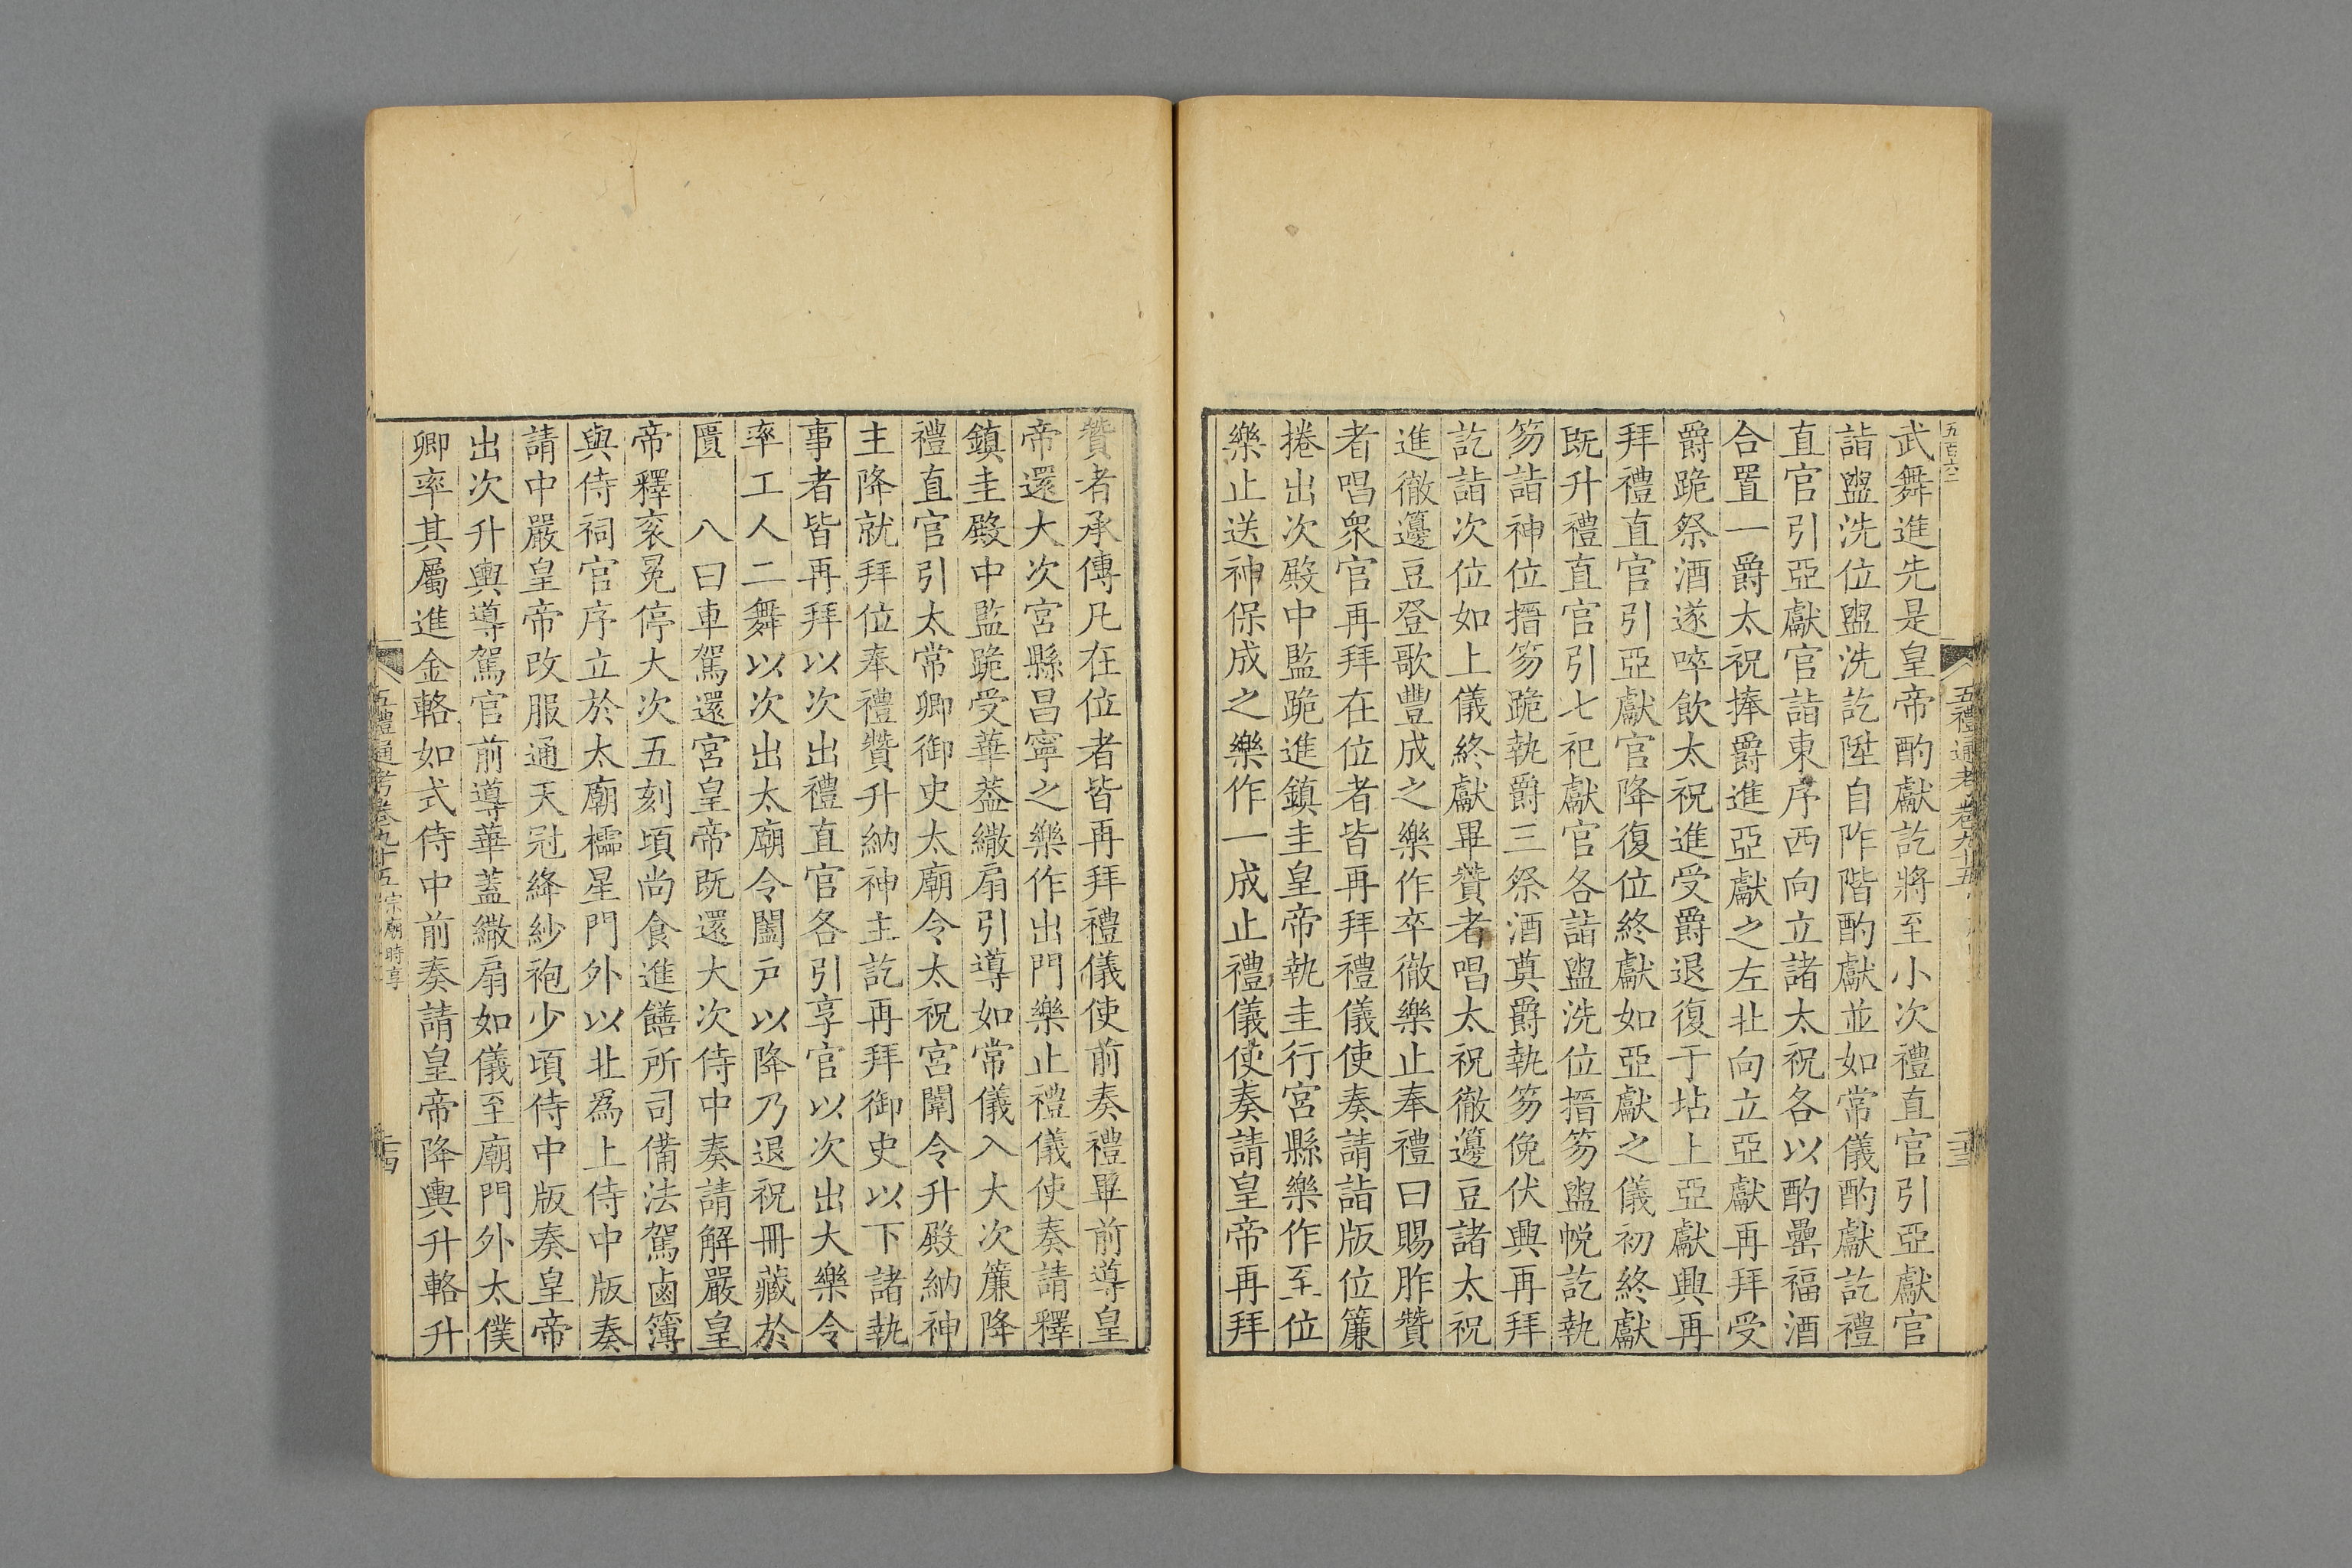 五百六二
五禮通考卷九十五
武舞進先是皇帝酌獻訖將至小次禮直官引亞獻官
詣盥洗位盥洗訖陞自阼階酌獻並如常儀酌獻訖禮
直官引亞獻官詣東序西向立諸太祝各以酌罍福酒
合置一爵太祝捧爵進亞獻之左北向立亞獻再拜受
爵跪祭酒遂啐飲太祝進受爵退復于坫上亞獻興再
拜禮直官引亞獻官降復位終獻如亞獻之儀初終獻
既升禮直官引七祀獻官各詣盥洗位搢笏盥帨訖執
笏詣神位搢笏跪執爵三祭酒奠爵執笏俛伏興再拜
訖詣次位如上儀終獻畢贊者唱太祝徹籩豆諸太祝
進徹籩豆登歌豐成之樂作卒徹樂止奉禮曰賜胙贊
者唱眾官再拜在位者皆再拜禮儀使奏請詣版位簾
捲出次殿中監跪進鎮圭皇帝執圭行宮縣樂作至位
樂止送神保成之樂作一成止禮儀使奏請皇帝再拜
贊者承傳凡在位者皆再拜禮儀使前奏禮畢前導皇
帝還大次宮縣昌寧之樂作出門樂止禮儀使奏請釋
鎮圭殿中監跪受華蓋繖扇引導如常儀入大次簾降
禮直官引太常卿御史太廟令太祝宮闈令升殿納神
主降就拜位奉禮贊升納神主訖再拜御史以下諸執
事者皆再拜以次出禮直官各引享官以次出大樂令
率工人二舞以次出太廟令闔戶以降乃退祝冊藏於
匱　八曰車駕還宮皇帝既還大次侍中奏請解嚴皇
帝釋衮冕停大次五刻頃尚食進饍所司備法駕鹵簿
與侍祠官序立於太廟櫺星門外以北為上侍中版奏
請中嚴皇帝改服通天冠絳紗袍少頃侍中版奏皇帝
出次升輿導駕官前導華蓋繖扇如儀至廟門外太僕
卿率其屬進金輅如式侍中前奏請皇帝降輿升輅升
五禮通考卷九十五 宗廟時享